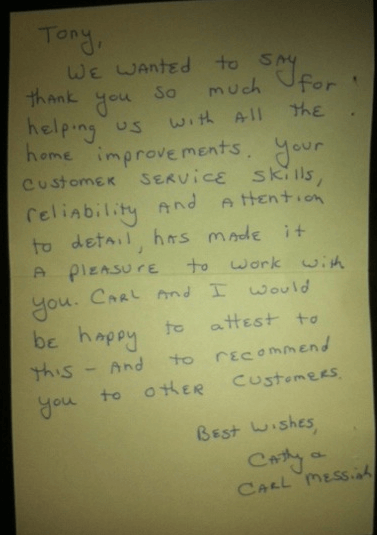 Tony,
We wanted to say
thank you so much for
helping us with all the
home improvements. Your
customer service skills,
reliability and attention
to detail, has made it
a pleasure to work with
you. Carl and I would
be happy to attest to
this - and to recommend
you to other customers.
Best Wishes,
Cathy &
Carl Messiah